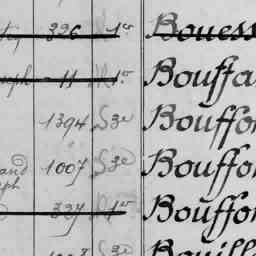 326 1er Bouess
ph 11 1er Bouffa
1394 S3e Bouffo
and 1007 S3e Bouffo
ph
327 1er Bouffo
3e Bouill